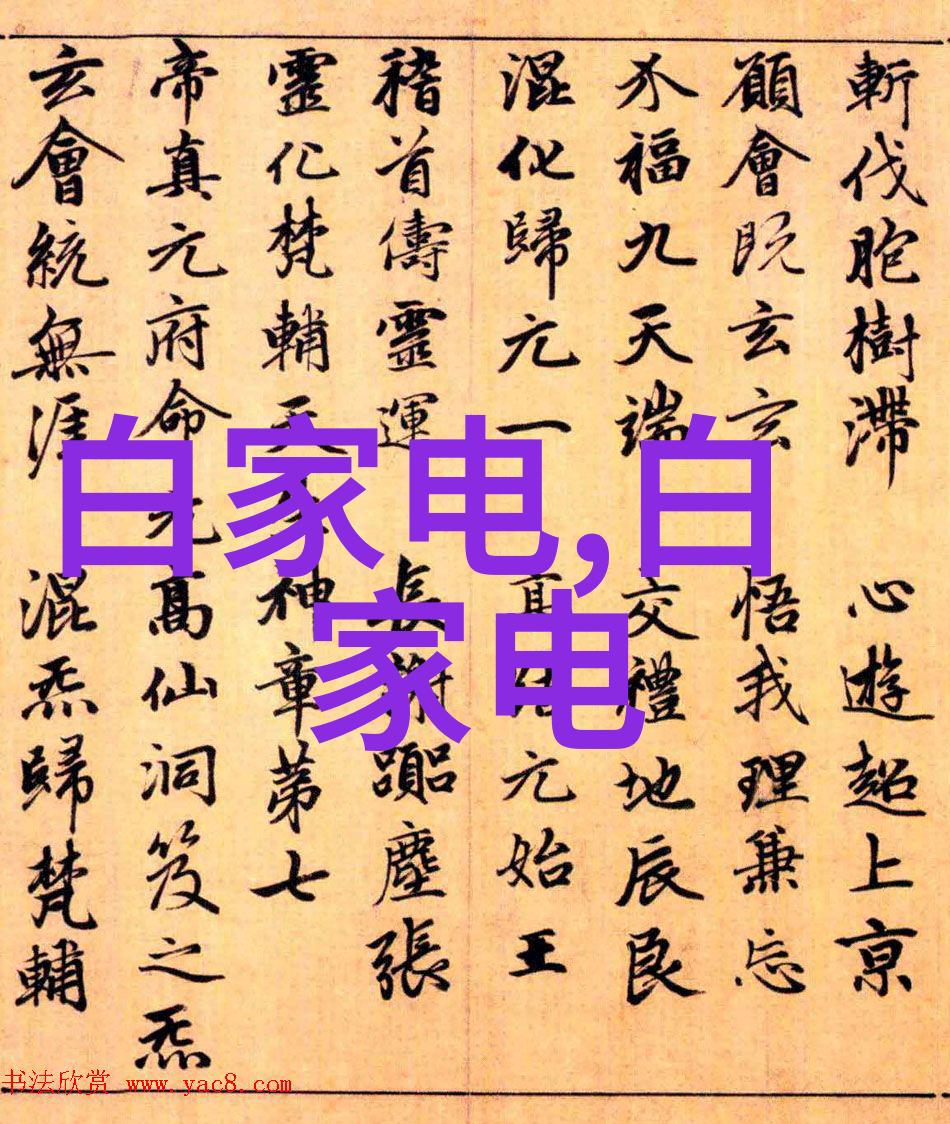 斬伐胞樹滯 心遊超上京
願會既玄玄 悟我理兼忘
介福九天端 交禮地辰良
混化歸元一 元始王
稽首儔靈運 長 躡塵張
靈化梵輔天 神章第七
帝真元府命元高仙洞笈之炁
玄會統無涯 混炁歸梵輔
白家电,白
家电
书法欣赏 www.yac8.com